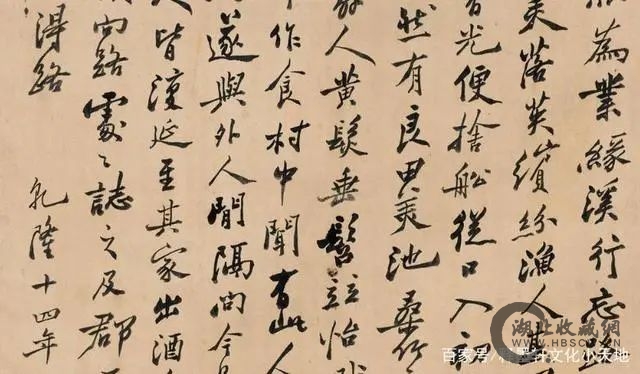 為業緣溪行忘路
美落英繽紛漁人甚
有光便捨船從口入初
然有良田美池桑竹
外人黃髮垂髫並怡然
作食村中聞有此人
遂與外人間隔問今
人皆復延至其家出酒
向路處〻誌之及郡
得路 乾隆十四年
湖北收藏网
百家号/文化小天地